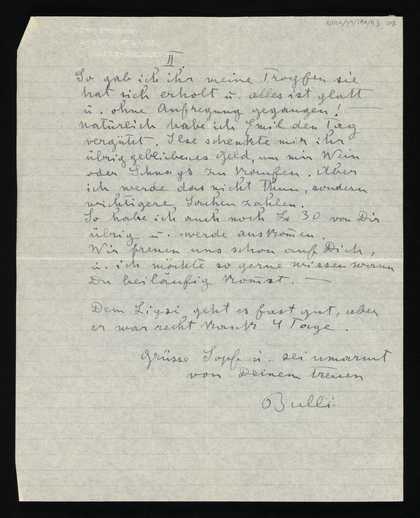 II.
So gab ich ihr meine Tropfen sie
hat sich erholt u. alles ist glatt
u. ohne Aufregung gegangen!
natürlich habe ich Emil den Tag
vergütet. Ilse schenkte mir ihr
übriggebliebenes Geld, um mir Wein
oder Schnaps zu kaufen. Aber
ich werde das nicht thun, sondern
wichtigere Sachen zahlen.
So habe ich auch noch 30 von Dir
übrig u. werde auskom̅en.
Wir freuen uns schon auf Dich,
u. ich möchte so gerne wissen wann
Du beiläufig kom̅st. —
Dem geht es fast gut, aber
er war recht krank 4 Tage.
Grüsse u. sei umarmt
von Deinem treuen
Bulli